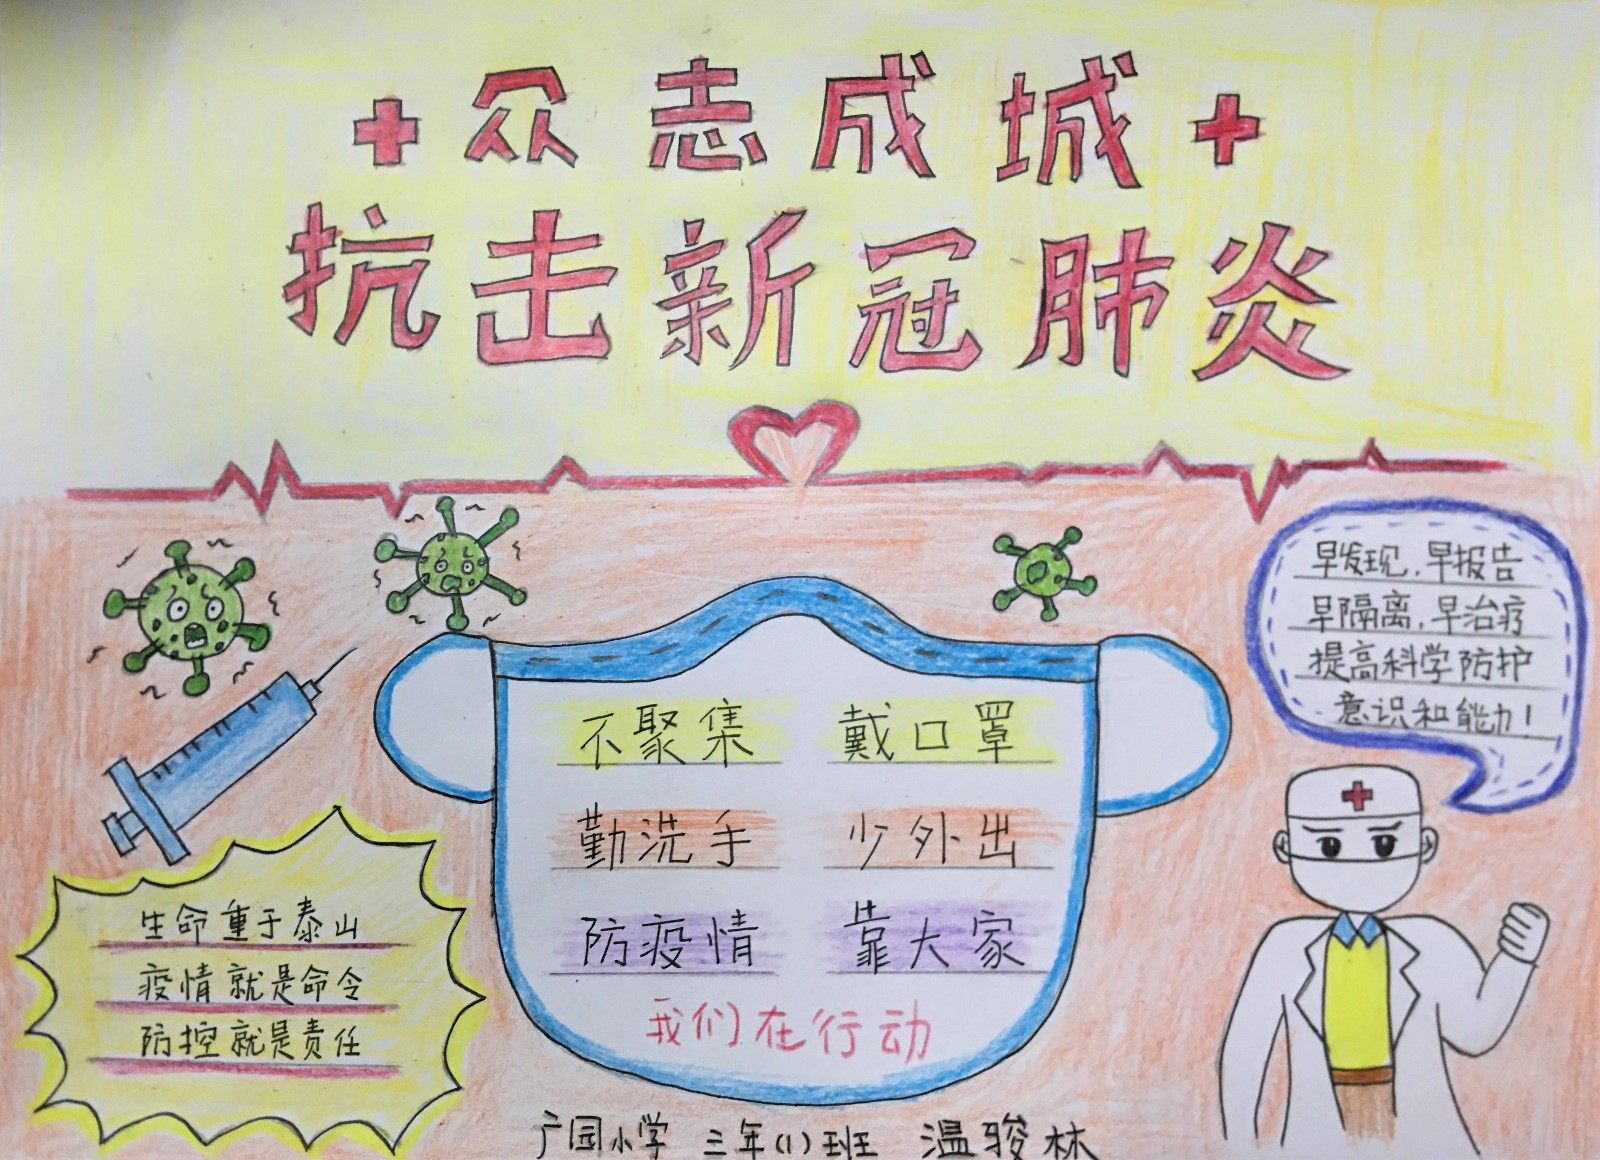 众志成城
抗击新冠肺炎
早发现，早报告
早隔离，早治疗
提高科学防护
意识和能力！
不聚集 戴口罩
勤洗手 少外出
防疫情 靠大家
我们在行动
生命重于泰山
疫情就是命令
防控就是责任
广园小学 三年(1)班 温骏林